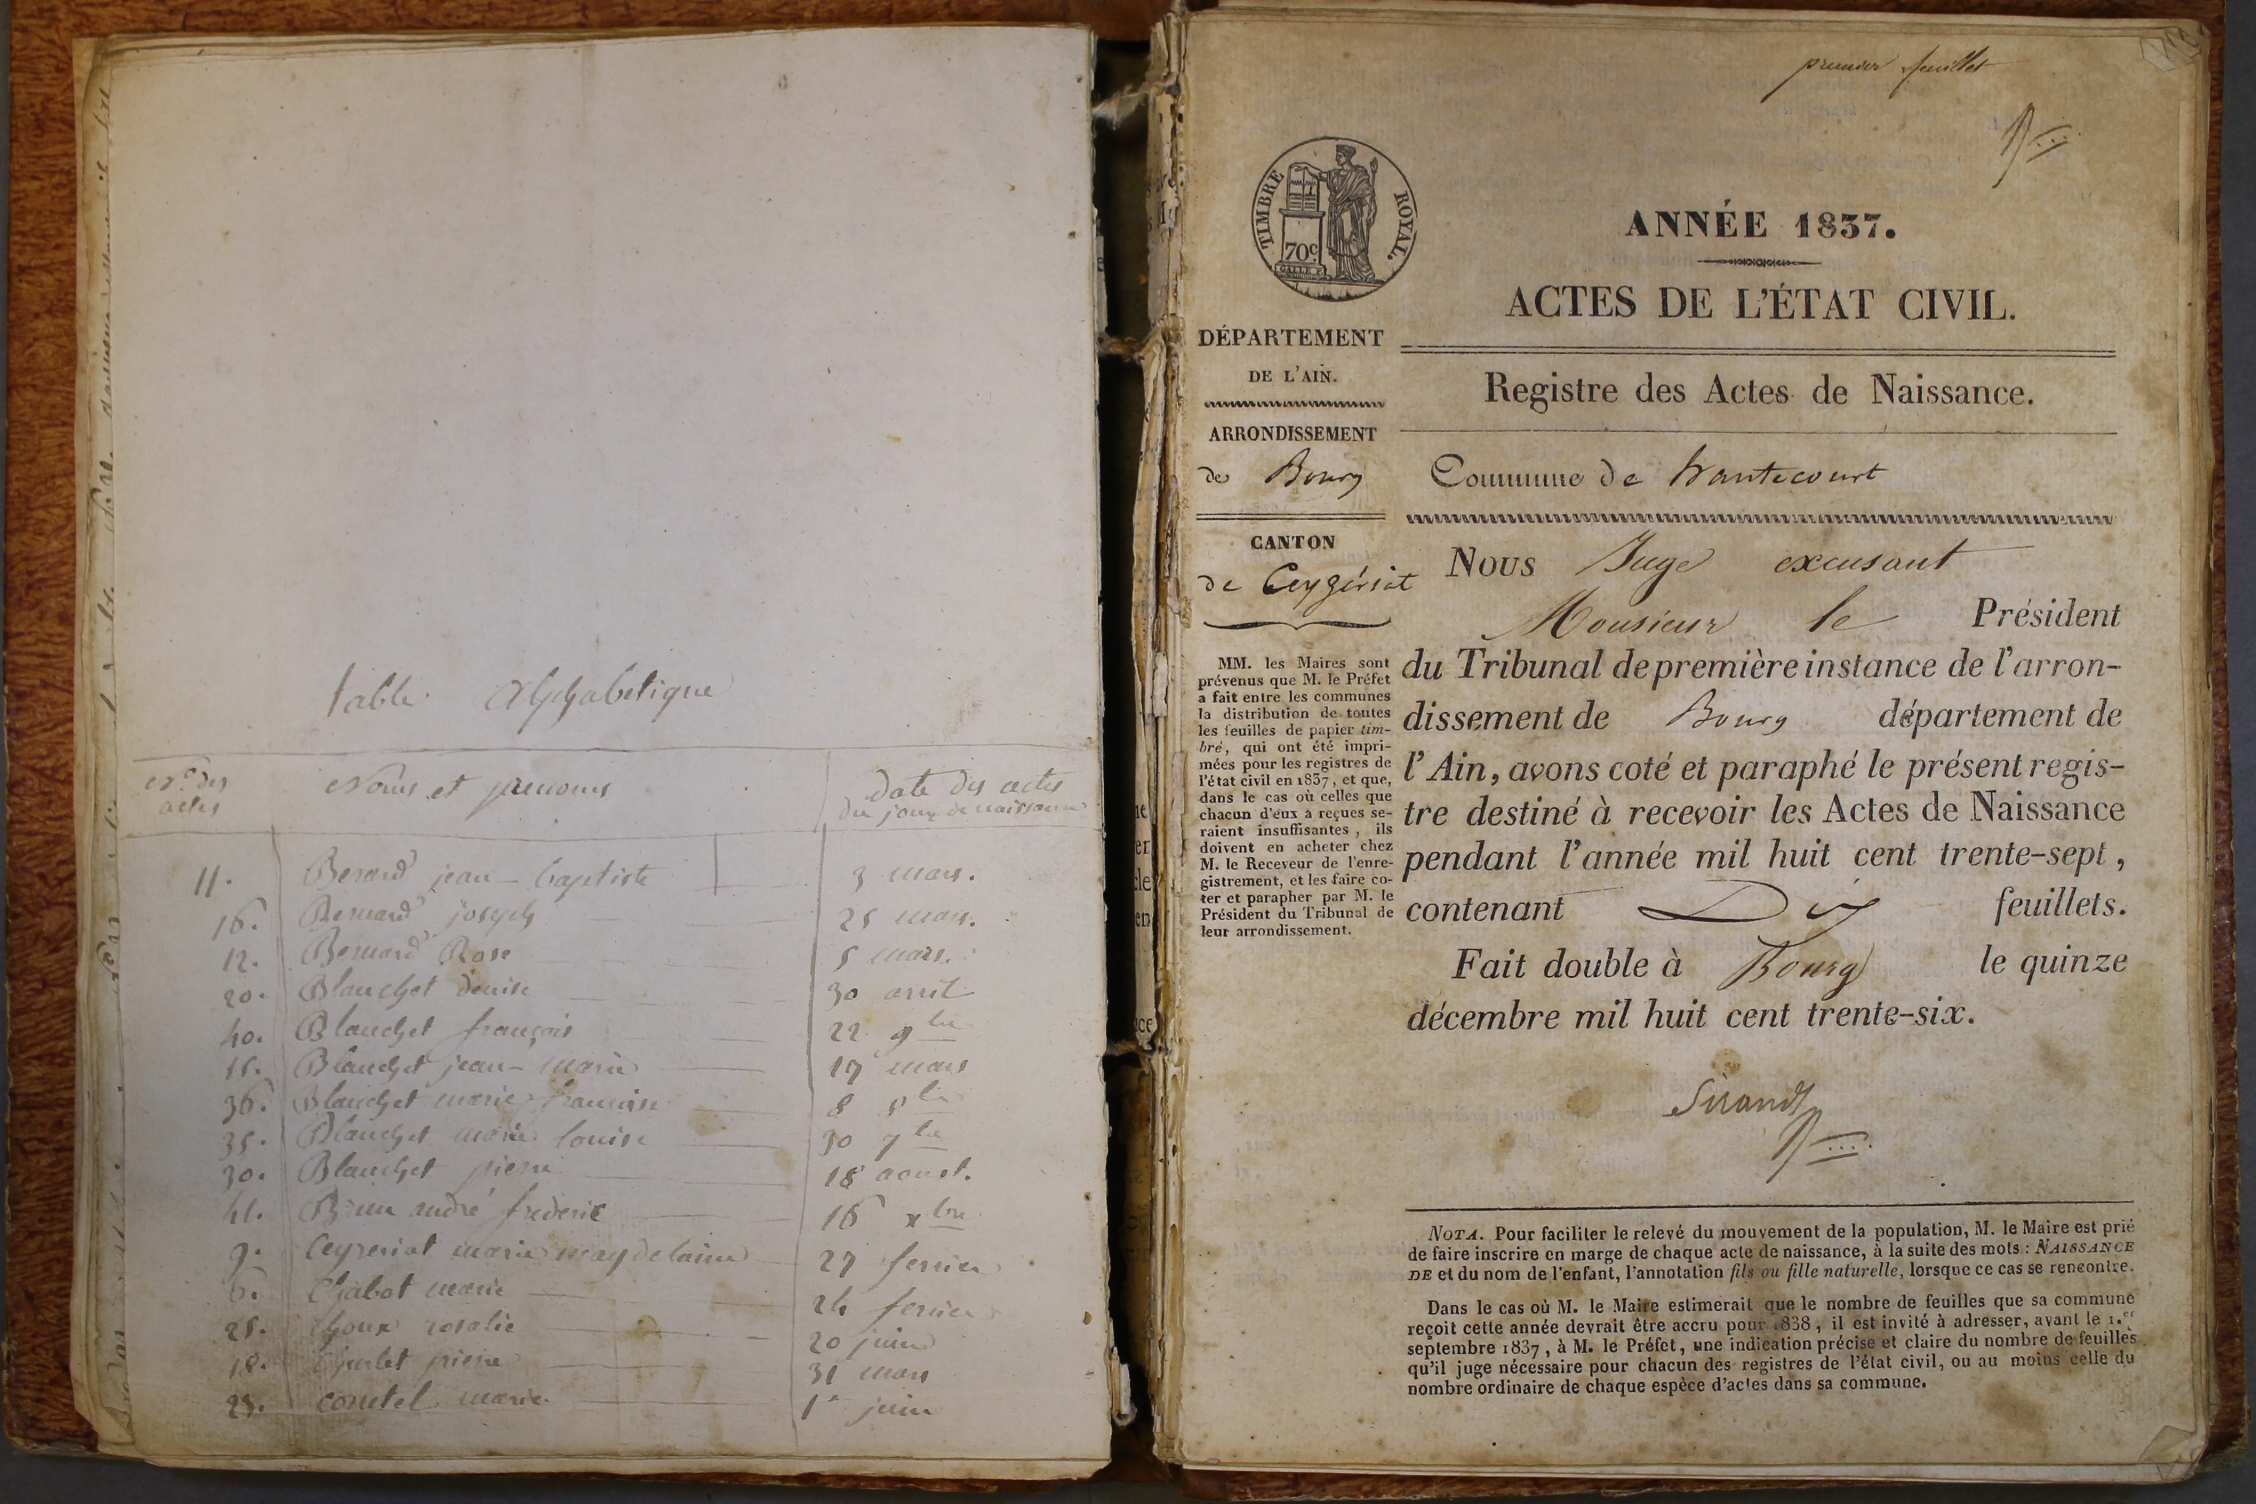 table alphabetique
Nos des
actes
Noms et prenoms
date des actes
du jour de naissance
11. Berard jean-baptiste 3 mars.
16. Bernard joseph 25 mars.
12. Bernard Rose 5 mars.
20. Blanchet denise 30 avril
40. Blanchet françois 22 9bre
15. Blanchet jean-marie 17 mars
36. Blanchet marie françoise 8 8bre
35. Blanchet marie louise 30 7bre
30. Blanchet pierre 18 aoust.
41. Brun andré frederic 16 xbre
9. Ceyzeriat marie magdelaine 27 fevrier
6. Chabot marie 24 fevrier
25. Choux rosalie 20 juin
18. pierre 31 mars
23. marie 1er juin
premier feuillet
TIMBRE ROYAL.
70c.
ANNÉE 1837.
ACTES DE L'ÉTAT CIVIL.
Registre des Actes de Naissance.
Commune de hautecourt
DÉPARTEMENT
DE L'AIN.
ARRONDISSEMENT
de Bourg
CANTON
de Ceyzériat
MM. les Maires sont
prévenus que M. le Préfet
a fait entre les communes
la distribution de toutes
les feuilles de papier tim-
bré, qui ont été impri-
mées pour les registres de
l'état civil en 1837, et que,
dans le cas où celles que
chacun d'eux a reçues se-
raient insuffisantes, ils
doivent en acheter chez
M. le Receveur de l'enre-
gistrement, et les faire co-
ter et parapher par M. le
Président du Tribunal de
leur arrondissement.
NOUS Juge excusant
Monsieur le Président
du Tribunal de première instance de l'arron-
dissement de Bourg département de
l'Ain, avons coté et paraphé le présent regis-
tre destiné à recevoir les Actes de Naissance
pendant l'année mil huit cent trente-sept,
contenant Dix feuillets.
Fait double à Bourg le quinze
décembre mil huit cent trente-six.
Sirand
NOTA. Pour faciliter le relevé du mouvement de la population, M. le Maire est prié
de faire inscrire en marge de chaque acte de naissance, à la suite des mots : NAISSANCE
DE et du nom de l'enfant, l'annotation fils ou fille naturelle, lorsque ce cas se rencontre.
Dans le cas où M. le Maire estimerait que le nombre de feuilles que sa commune
reçoit cette année devrait être accru pour 1838, il est invité à adresser, avant le 1.er
septembre 1837, à M. le Préfet, une indication précise et claire du nombre de feuilles
qu'il juge nécessaire pour chacun des registres de l'état civil, ou au moins celle du
nombre ordinaire de chaque espèce d'actes dans sa commune.